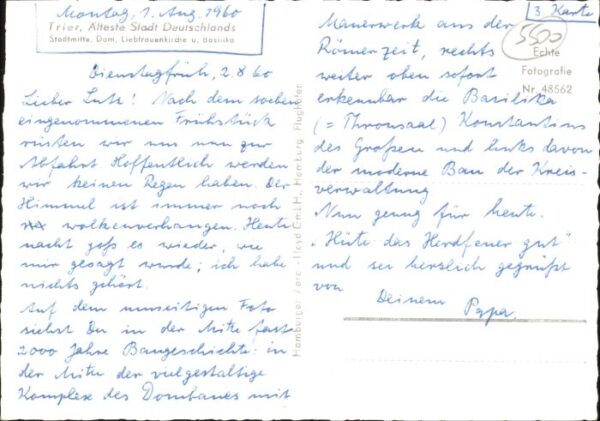 Montag, 1. Aug. 1960
Trier, Älteste Stadt Deutschlands
Stadtmitte, Dom, Liebfrauenkirche u. Basilika
Dienstagfrüh, 2.8.60
Lieber Lutz! Nach dem soeben
eingenommenen Frühstück
rüsten wir uns nun zur
Abfahrt. Hoffentlich werden
wir keinen Regen haben. Der
Himmel ist immer noch
wolkenverhangen. Heute
nacht goß es wieder, wie
mir gesagt wurde; ich habe
nichts gehört.
Auf dem umseitigen Foto
siehst Du in der Mitte fast
2000 Jahre Baugeschichte: in
der Mitte der vielgestaltige
Komplex des Dombaues mit
Hamburger Aero-Lloyd GmbH., Hamburg Flughafen
3. Karte
5500
Echte
Fotografie
Nr. 48562
Mauerwerk aus der
Römerzeit, rechts
weiter oben sofort
erkennbar die Basilika
(= Thronsaal) Konstantins
des Großen und links davon
der moderne Bau der Kreis-
verwaltung
Nun genug für heute.
"Hüte das Herdfeuer gut"
und sei herzlich gegrüßt
von
Deinem Papa.